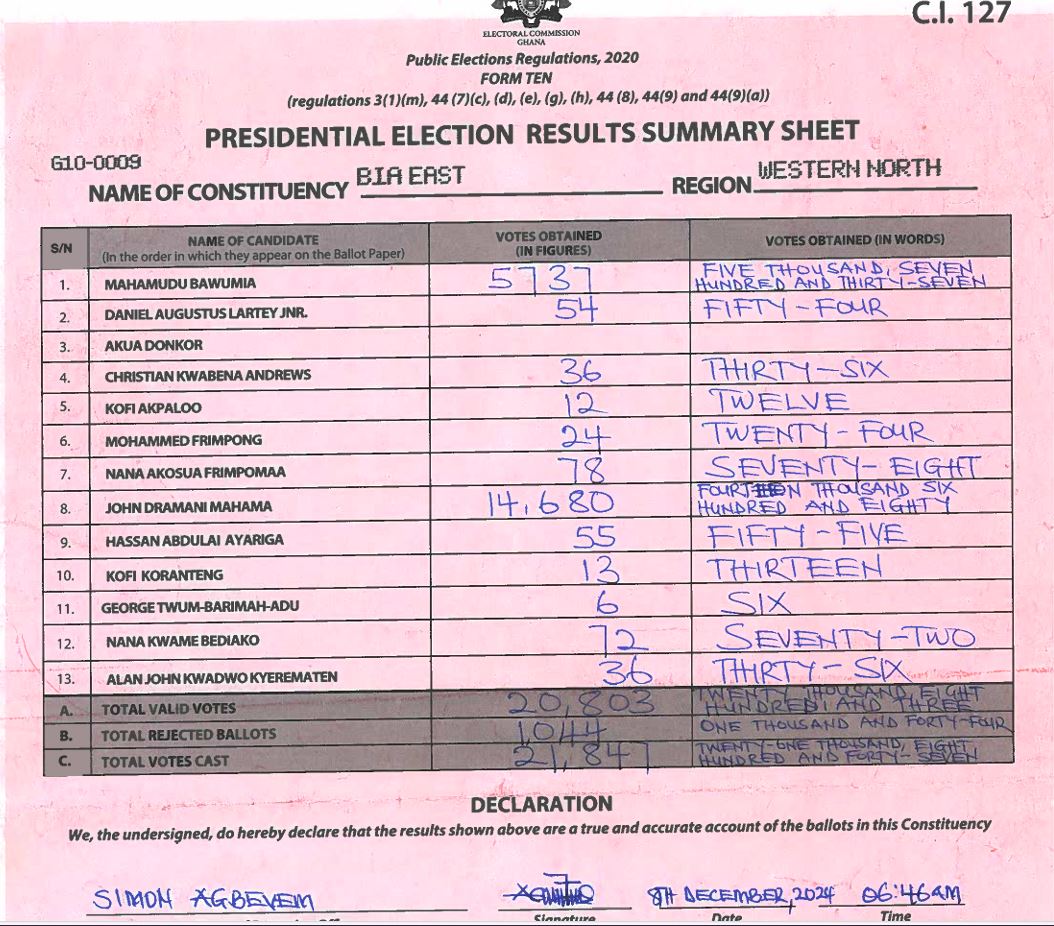 C.I. 127
ELECTORAL COMMISSION
GHANA
Public Elections Regulations, 2020
FORM TEN
(regulations 3(1)(m), 44 (7)(c), (d), (e), (g), (h), 44 (8), 44(9) and 44(9)(a))
PRESIDENTIAL ELECTION RESULTS SUMMARY SHEET
G10-0009
NAME OF CONSTITUENCY BIA EAST REGION WESTERN NORTH
S/N NAME OF CANDIDATE (In the order in which they appear on the Ballot Paper) VOTES OBTAINED (IN FIGURES) VOTES OBTAINED (IN WORDS)
1. MAHAMUDU BAWUMIA 5737 FIVE THOUSAND, SEVEN HUNDRED AND THIRTY-SEVEN
2. DANIEL AUGUSTUS LARTEY JNR. 54 FIFTY-FOUR
3. AKUA DONKOR
4. CHRISTIAN KWABENA ANDREWS 36 THIRTY-SIX
5. KOFI AKPALOO 12 TWELVE
6. MOHAMMED FRIMPONG 24 TWENTY-FOUR
7. NANA AKOSUA FRIMPOMAA 78 SEVENTY-EIGHT
8. JOHN DRAMANI MAHAMA 14,680 THOUSAND SIX HUNDRED AND EIGHTY
9. HASSAN ABDULAI AYARIGA 55 FIFTY-FIVE
10. KOFI KORANTENG 13 THIRTEEN
11. GEORGE TWUM-BARIMAH-ADU 6 SIX
12. NANA KWAME BEDIAKO 72 SEVENTY-TWO
13. ALAN JOHN KWADWO KYEREMATEN 36 THIRTY-SIX
A. TOTAL VALID VOTES 20,803 TWENTY THOUSAND, EIGHT HUNDRED AND THREE
B. TOTAL REJECTED BALLOTS 1,044 ONE THOUSAND AND FORTY-FOUR
C. TOTAL VOTES CAST 21,847 TWENTY-ONE THOUSAND, EIGHT HUNDRED AND FORTY-SEVEN
DECLARATION
We, the undersigned, do hereby declare that the results shown above are a true and accurate account of the ballots in this Constituency
SIMON AGBEVEM 8TH DECEMBER, 2024 06:46AM
Signature Date Time